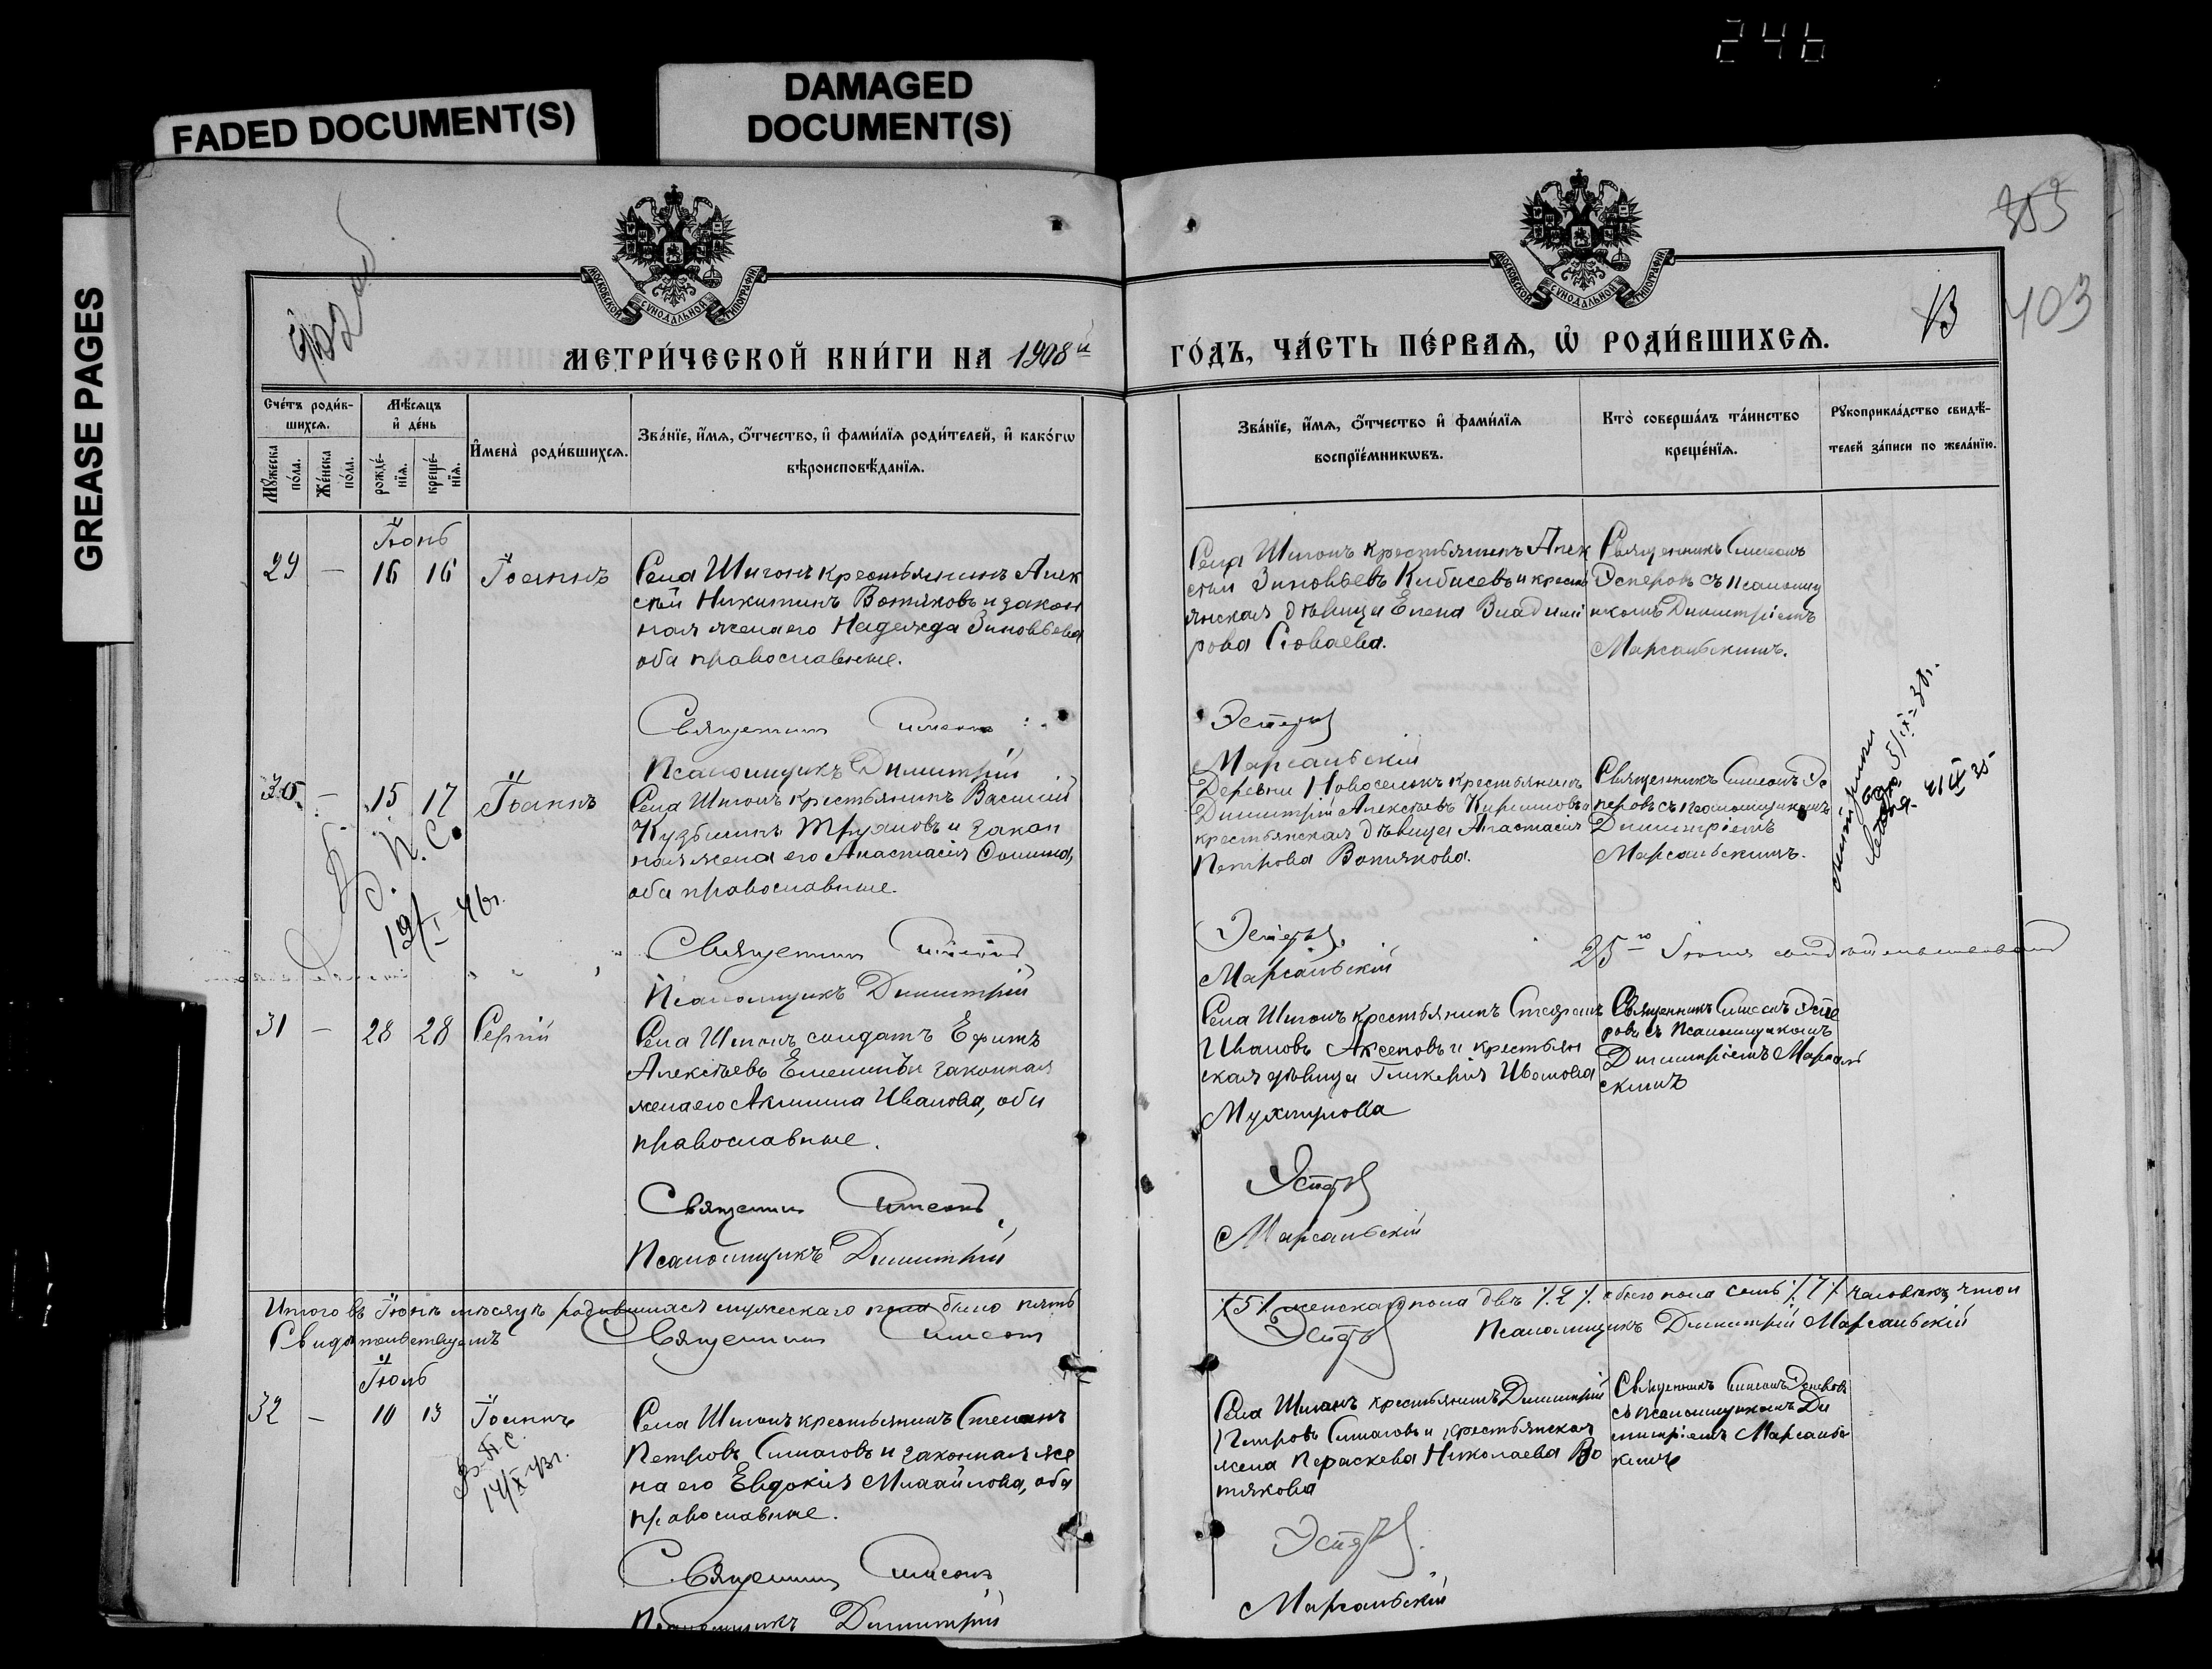 246
FADED DOCUMENT(S)
DAMAGED
DOCUMENT(S)
GREASE PAGES
403
13
МОСКОВСКОЙ СѴНОДАЛЬНОЙ ТИПОГРАФІИ
МОСКОВСКОЙ СѴНОДАЛЬНОЙ ТИПОГРАФІИ
МЕТРИ́ЧЕСКОЙ КНИ́ГИ НА 1908й
ГО́ДЪ, ЧА́СТЬ ПЕ́РВАѦ, Ѡ҆ РОДИ́ВШИХСѦ.
Сче́тъ роди́в-
шихсѧ.
Мꙋ́жеска
по́ла.
Же́нска
по́ла.
Мѣ́сѧцъ
и҆ де́нь
рожде́-
нїѧ.
креще́-
нїѧ.
И҆мена̀ роди́вшихсѧ.
Зва́нїе, и҆́мѧ, ѻ҆́тчество, и҆ фами́лїѧ роди́телей, и҆ како́гѡ
вѣроисповѣ́данїѧ.
Зва́нїе, и҆́мѧ, ѻ҆́тчество и҆ фами́лїѧ
воспрїе́мникѡвъ.
Кто̀ соверша́лъ та́инство
креще́нїѧ.
Рꙋкоприкла́дство свидѣ́-
телей за́писи по жела́нїю.
Іюнь
29 — 16 16 Іоаннъ
Села Шигонъ крестьянинъ Алек
сѣй Никитинъ Вотяковъ и закон
ная жена его Надежда Зиновьева
оба православные.
Священникъ Симеонъ
Псаломщикъ Димитрій
Села Шигонъ крестьянинъ Алек
сѣй Зиновьевъ Кибисевъ и кресть
янская дѣвица Елена Владими
рова Соваева.
Эсперовъ
Марсальскій
Священникъ Симеонъ
Эсперовъ съ псаломщи
комъ Димитріемъ
Марсальскимъ.
30. — 15 17 Іоаннъ
Села Шигонъ крестьянинъ Василій
Кузьминъ Труновъ и закон
ная жена его Анастасія Фомина,
оба православные.
Священникъ Симеонъ
Псаломщикъ Димитрій
Деревни Новоселокъ крестьянинъ
Димитрій Алексѣевъ Кирилловъ и
крестьянская дѣвица Анастасія
Петрова Вотякова.
Эсперовъ.
Марсальскій
Священникъ Симеонъ Эс
перовъ съ псаломщикомъ
Димитріемъ
Марсальскимъ.
П. С.
19/I 46г.
25го Іюня свидѣтельствовалъ
31 — 28 28 Сергій
Села Шигонъ солдатъ Ефимъ
Алексѣевъ Емелинъ и законная
жена его Акилина Иванова, оба
православные.
Священникъ Симеонъ
Псаломщикъ Димитрій
Села Шигонъ крестьянинъ Стефанъ
Ивановъ Аксеновъ и крестьян
ская дѣвица Гликерія Иванова
Мухтулова
Эсперовъ
Марсальскій
Священникъ Симеонъ Эспе
ровъ съ Псаломщикомъ
Димитріемъ Марсаль
скимъ
Итого въ Іюнѣ мѣсяцѣ родившихся мужескаго пола было пять
/.5/. женскаго пола двѣ /.2/. обоего пола семь /.7/. человѣкъ, что и
Свидѣтельствуемъ Священникъ Симеонъ
Эсперовъ Псаломщикъ Димитрій Марсальскій
Іюль
32 — 10 13 Іоаннъ
Села Шигонъ крестьянинъ Степанъ
Петровъ Симаговъ и законная же
на его Евдокія Михайлова, оба
православные.
Священникъ Симеонъ
Псаломщикъ Димитрій
Села Шигонъ крестьянинъ Димитрій
Петровъ Симаговъ и крестьянская
жена Параскева Николаева Во
тякова
Эсперовъ.
Марсальскій
Священникъ Симеонъ Эсперовъ
съ псаломщикомъ Ди
митріемъ Марсальс
кимъ